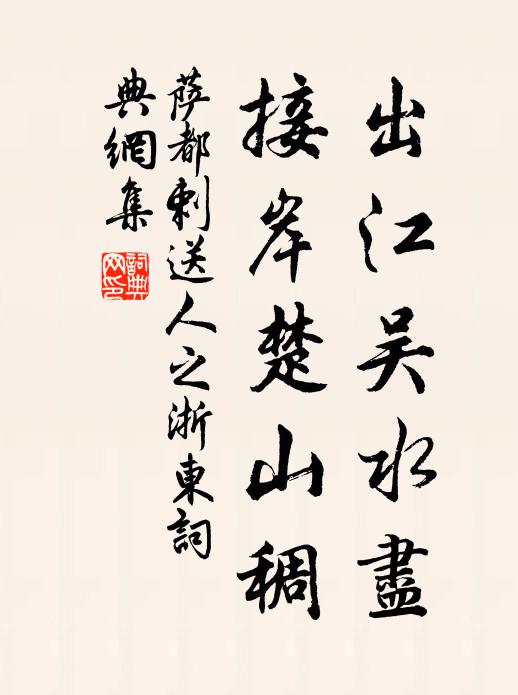 出江吴水盡
接岸楚山稠
萨都剌送人之浙東詞
典網集
詞典網印